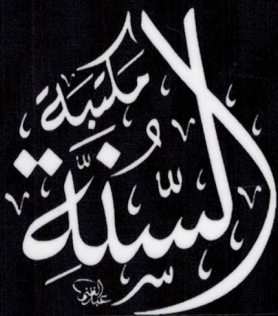 مَكتَبَة
السُّنَّةِ